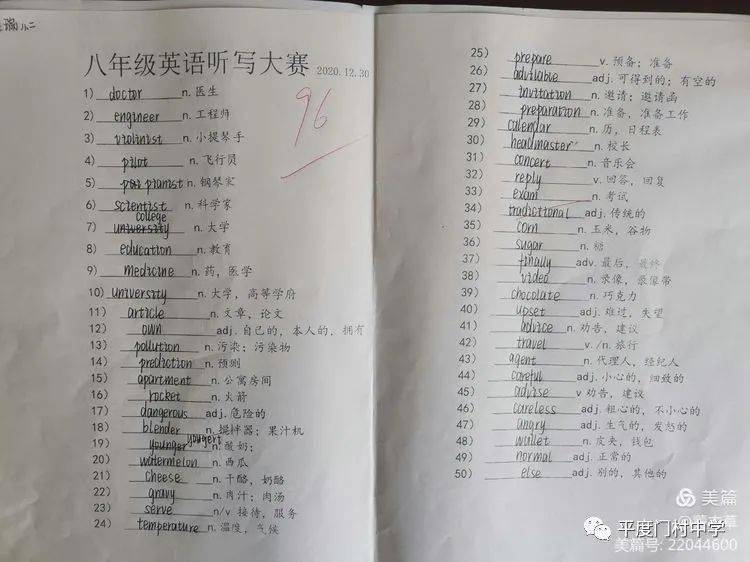 八年级英语听写大赛 2020.12.30
96
1) doctor n. 医生
2) engineer n. 工程师
3) violinist n. 小提琴手
4) pilot n. 飞行员
5) pianist n. 钢琴家
6) scientist n. 科学家
college
7) university n. 大学
8) education n. 教育
9) medicine n. 药，医学
10) university n. 大学，高等学府
11) article n. 文章，论文
12) own adj. 自己的，本人的，拥有
13) pollution n. 污染；污染物
14) prediction n. 预测
15) apartment n. 公寓房间
16) rocket n. 火箭
17) dangerous adj. 危险的
18) blender n. 搅拌器；果汁机
19) younger yougert n. 酸奶；
20) watermelon n. 西瓜
21) cheese n. 干酪，奶酪
22) gravy n. 肉汁；肉汤
23) serve n/v 接待，服务
24) temperature n. 温度，气候
25) prepare v. 预备；准备
26) available adj. 可得到的；有空的
27) invitation n. 邀请；邀请函
28) preparation n. 准备，准备工作
29) calendar n. 历，日程表
30) headmaster n. 校长
31) concert n. 音乐会
32) reply v. 回答，回复
33) exam n. 考试
34) tradictional adj. 传统的
35) corn n. 玉米，谷物
36) sugar n. 糖
37) finally adv. 最后，最终
38) video n. 录像，录像带
39) chocolate n. 巧克力
40) upset adj. 难过，失望
41) advice n. 劝告，建议
42) travel v. /n. 旅行
43) agent n. 代理人，经纪人
44) careful adj. 小心的，细致的
45) advise v 劝告，建议
46) careless adj. 粗心的，不小心的
47) angry adj. 生气的，发怒的
48) wallet n. 皮夹，钱包
49) normal adj. 正常的
50) else adj. 别的，其他的
美篇
平度门村中学
美篇号: 22044600